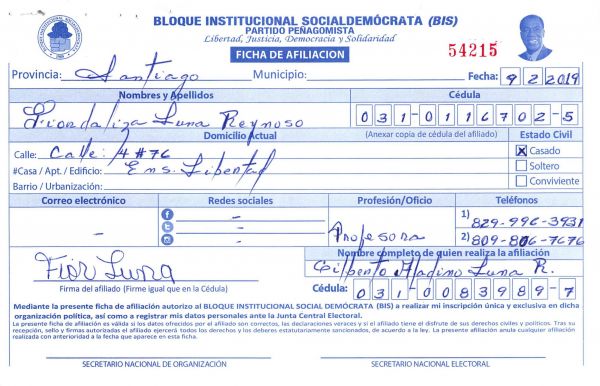 BLOQUE INSTITUCIONAL SOCIALDEMÓCRATA (BIS)
PARTIDO PEÑAGOMISTA
Libertad, Justicia, Democracia y Solidaridad
FICHA DE AFILIACION
54215
Provincia: Santiago Municipio: Fecha: 9 2 2019
Nombres y Apellidos Cédula
Fiordaliza Luna Reynoso 031-0116702-5
Domicilio Actual (Anexar copia de cédula del afiliado) Estado Civil
Calle: Calle: 4 #76 X Casado
#Casa / Apt. / Edificio: Ens. Libertad Soltero
Barrio / Urbanización: Conviviente
Correo electrónico Redes sociales Profesión/Oficio Teléfonos
- - - - Profesora 1) 829-996-3931
2) 809-806-7676
Nombre completo de quien realiza la afiliación
Fior Luna Luna R.
Firma del afiliado (Firme igual que en la Cédula) Cédula: 031-0083989-7
Mediante la presente ficha de afiliación autorizo al BLOQUE INSTITUCIONAL SOCIAL DEMÓCRATA (BIS) a realizar mi inscripción única y exclusiva en dicha
organización política, así como a registrar mis datos personales ante la Junta Central Electoral.
La presente ficha de afiliación es válida si los datos ofrecidos por el afiliado son correctos, las declaraciones veraces y si el afiliado tiene el disfrute de sus derechos civiles y políticos. Tras su
recepción, sello y firmas autorizadas el afiliado ejercerá todos los derechos y los deberes estatutariamente sancionados, de acuerdo a la ley. La presente afiliación anula cualquier afiliación
realizada con anterioridad a la fecha que aparece en esta ficha.
SECRETARIO NACIONAL DE ORGANIZACIÓN SECRETARIO NACIONAL ELECTORAL